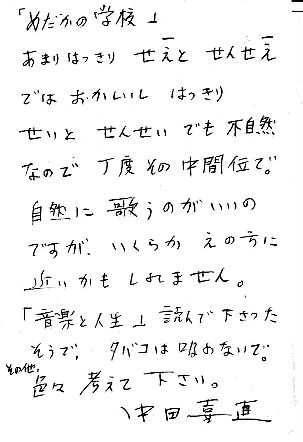 「めだかの学校」
あまりはっきり せえと せんせえ
では おかしいし はっきり
せいと せんせい でも 不自然
なので 丁度その中間位で。
自然に 歌うのがいいの
ですが、いくらか えの方に
近いかもしれません。
「音楽と人生」読んで下さった
そうで、タバコは吸わないで。
その他、
色々 考えて 下さい。
中田喜直